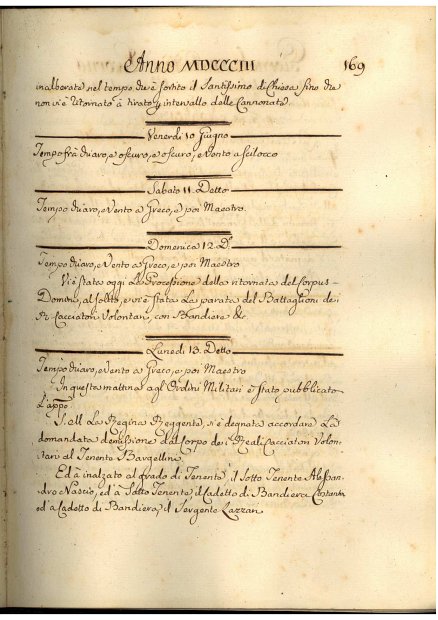 Anno MDCCCIII 169
inalberate nel tempo che è sortito il Santissimo di Chiesa sino che
non si è ritornato à tirato, intervallo delle Cannonate.
Venerdi 10 Giugno
Tempo frà chiaro, e oscuro, e oscuro, e Vento a scilocco
Sabato 11. Detto
Tempo chiaro, e Vento a Greco, e poi Maestro.
Domenica 12. D.º
Tempo chiaro, e Vento a Greco, e poi Maestro
Vi è stata oggi la Processione della ritornata del Corpus-
Domini, al solito, e vi è stata La parata del Battaglione dei
R. Cacciatori Volontari, con Bandiere &c
Lunedi 13. Detto
Tempo chiaro, e Vento a Greco, e poi Maestro
In questa mattina agl'Ordini Militari è stato pubblicato
L'appo
S. M. La Regina Reggente, si è degnata accordare La
domandata demissione dal Corpo dei Reali Cacciatori Volon-
tari al Tenente Bargellini
Ed à inalzato al grado di Tenente, il Sotto Tenente Alessan-
dro Nascio, ed à Sotto Tenente, il Cadetto di Bandiera
ed à Cadetto di Bandiera, il Sergente Lazzari